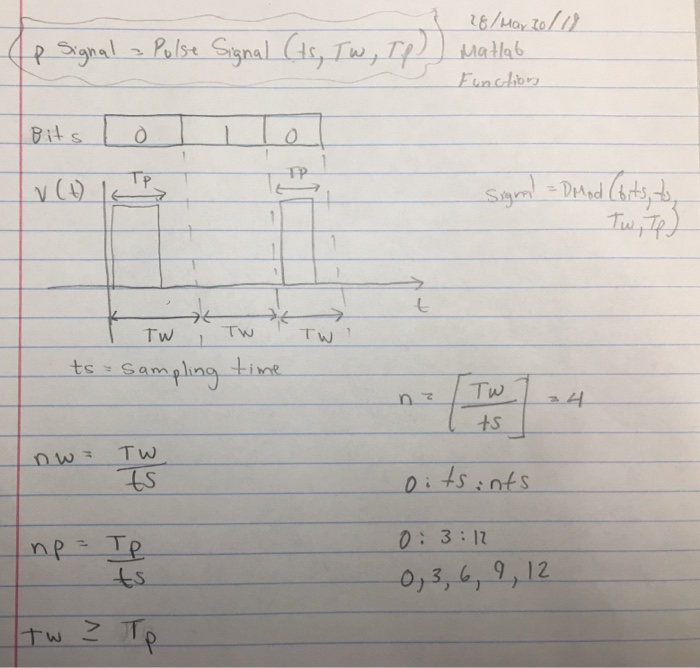 28/Mar 2018
p Signal = Pulse Signal (ts, Tw, Tp)
Matlab
Functions
Bits 0 1 0
v(t) Tp Tp
Signal = DMod (bits, ts,
Tw, Tp)
t
Tw Tw Tw
ts = sampling time
n = ⌈Tw/ts⌉ = 4
nw = Tw/ts
0: ts: nts
np = Tp/ts
0: 3: 12
0, 3, 6, 9, 12
Tw ≥ Tp